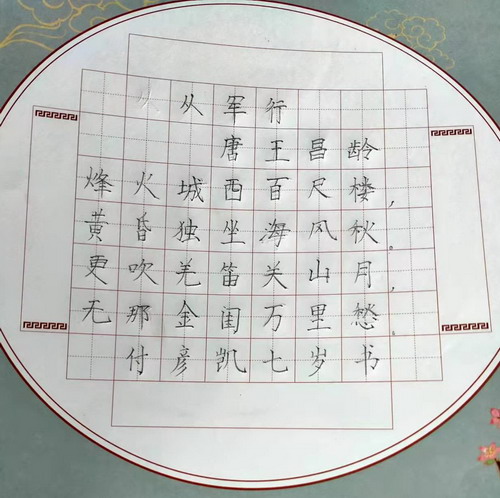 从军行
唐王昌龄
烽火城西百尺楼，
黄昏独坐海风秋。
更吹羌笛关山月，
无那金闺万里愁。
付彦凯七岁书